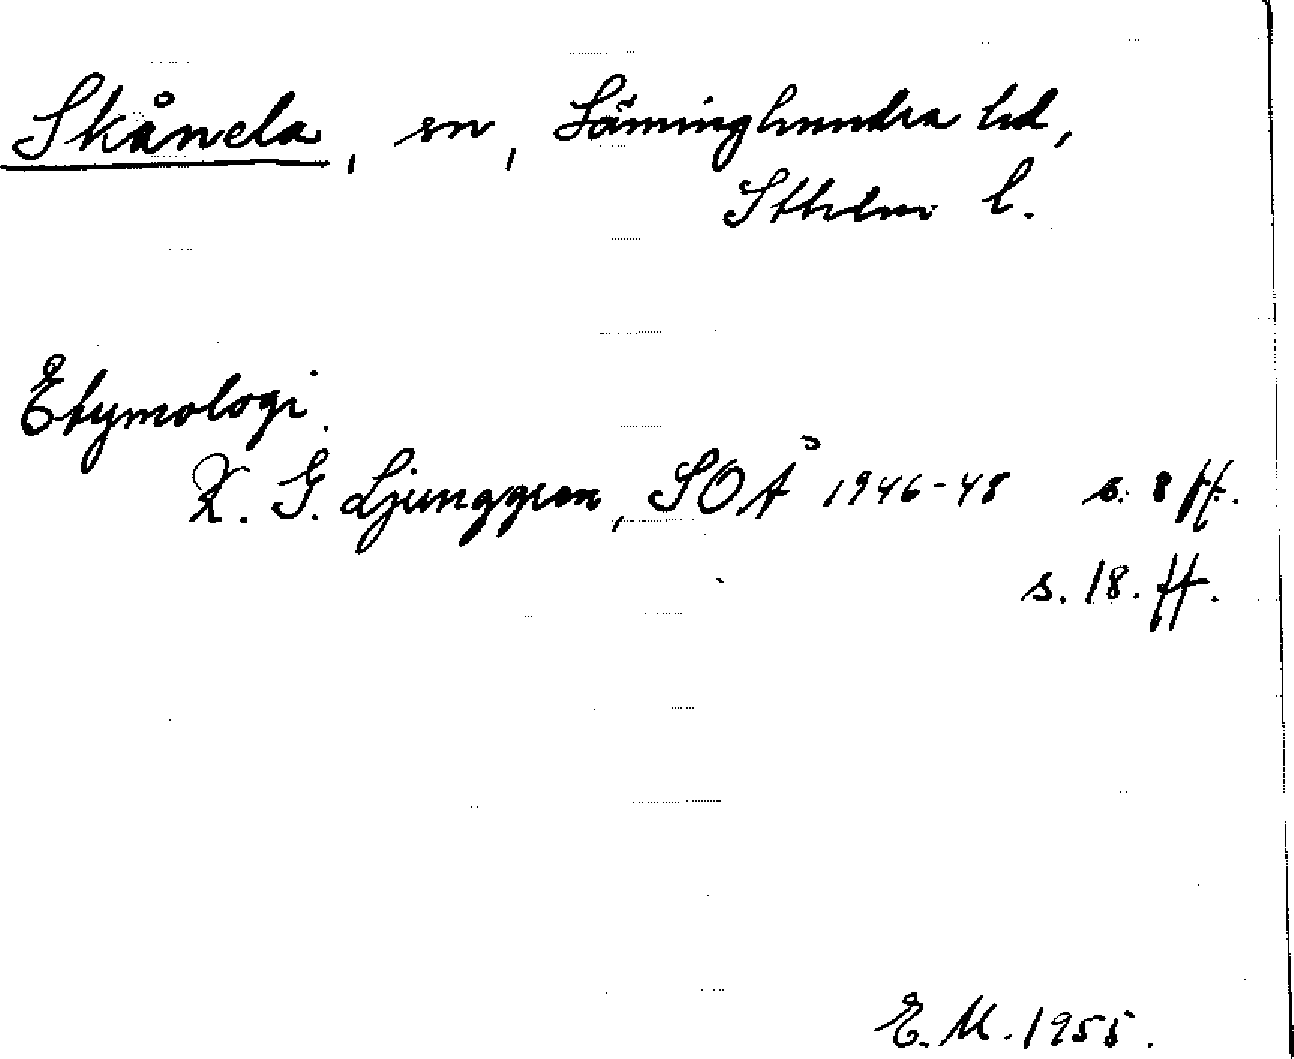 Skånela, sn, Sämminghundra hd,
Sthlm l.
Etymologi.
K. G. Ljunggren, SOÅ 1946-48 s. 8 ff.
s. 18. ff.
E. M. 1955.